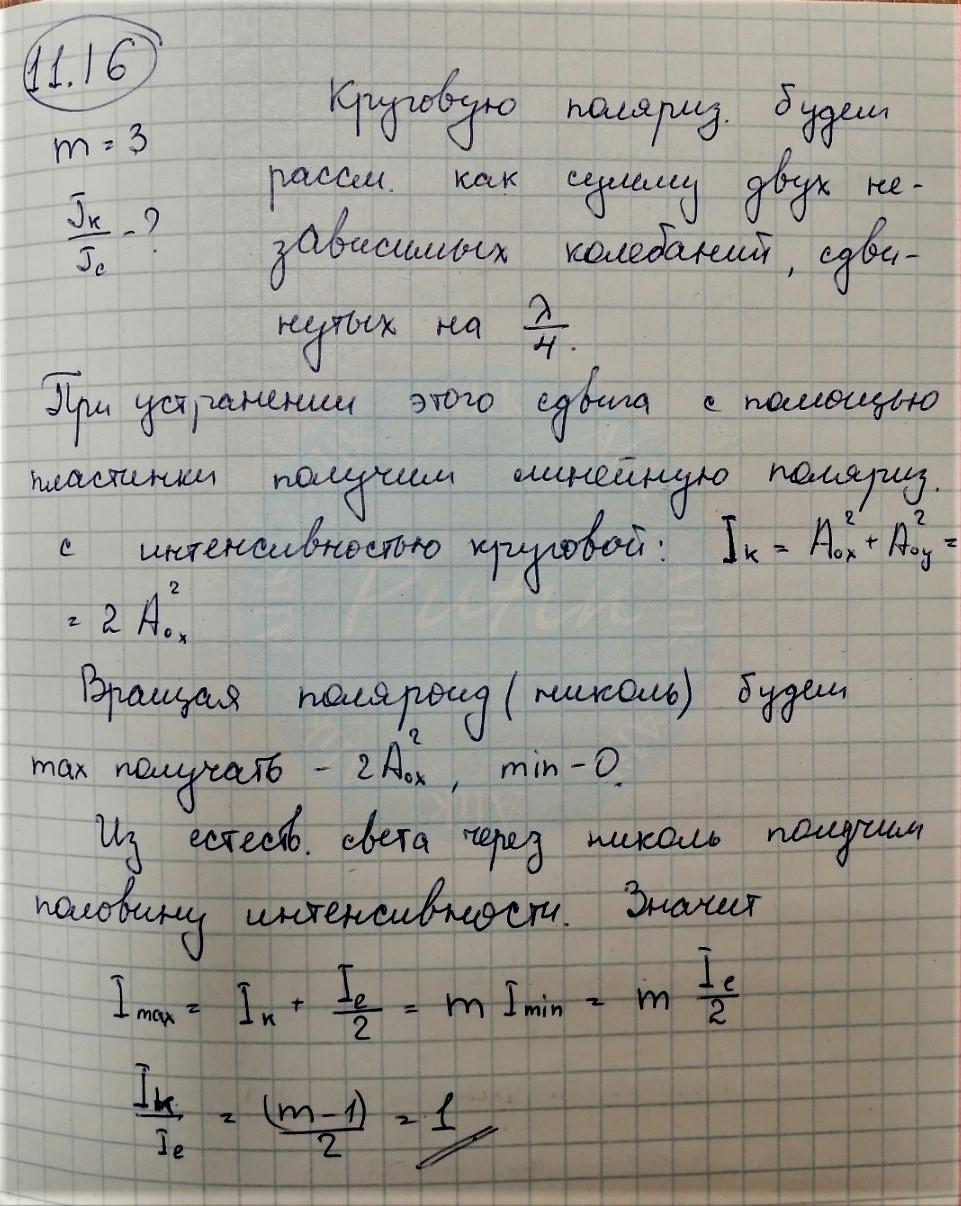 11.16
m = 3
Iк/Iс - ?
Круговую поляриз. будем
рассм. как сумму двух не-
зависимых колебаний, сдви-
нутых на λ/4.
При устранении этого сдвига с помощью
пластинки получим линейную поляриз.
с интенсивностью круговой: Iк = A₀ₓ² + A₀y² =
= 2 A₀ₓ²
Вращая поляроид (николь) будем
max получать - 2A₀ₓ², min - 0.
Из естеств. света через николь получим
половину интенсивности. Значит
Imax = Iк + Ie/2 = m Imin = m Ie/2
Iк/Ie = (m-1)/2 = 1
Kutin